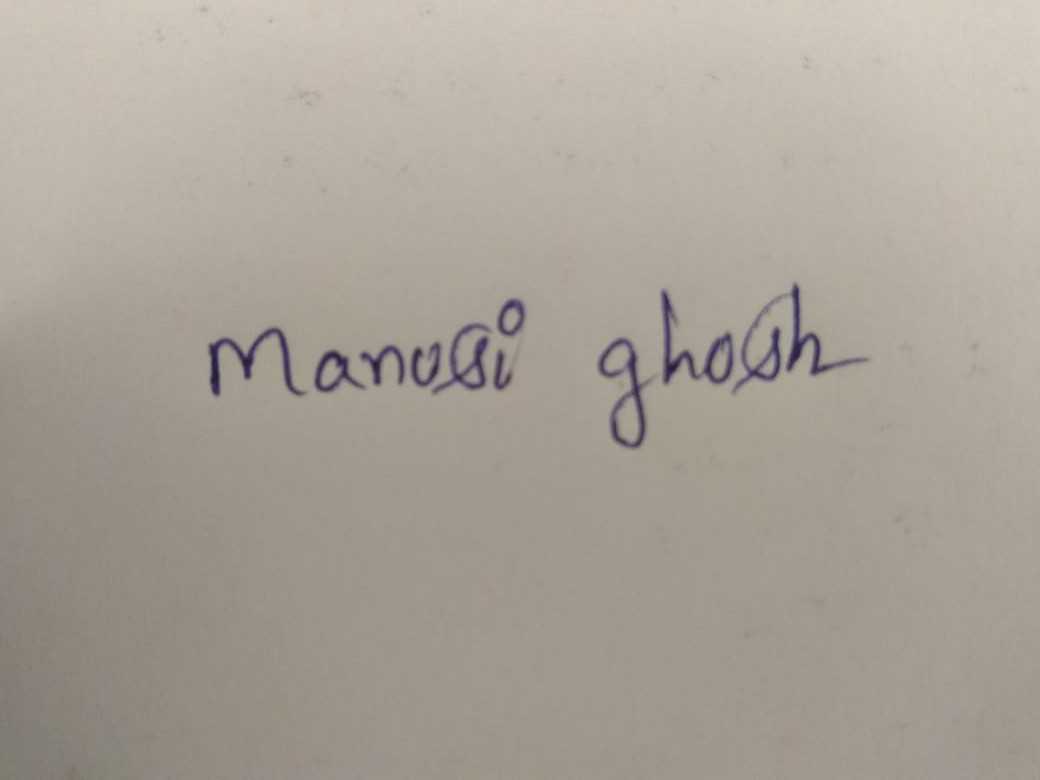 Manosi ghosh